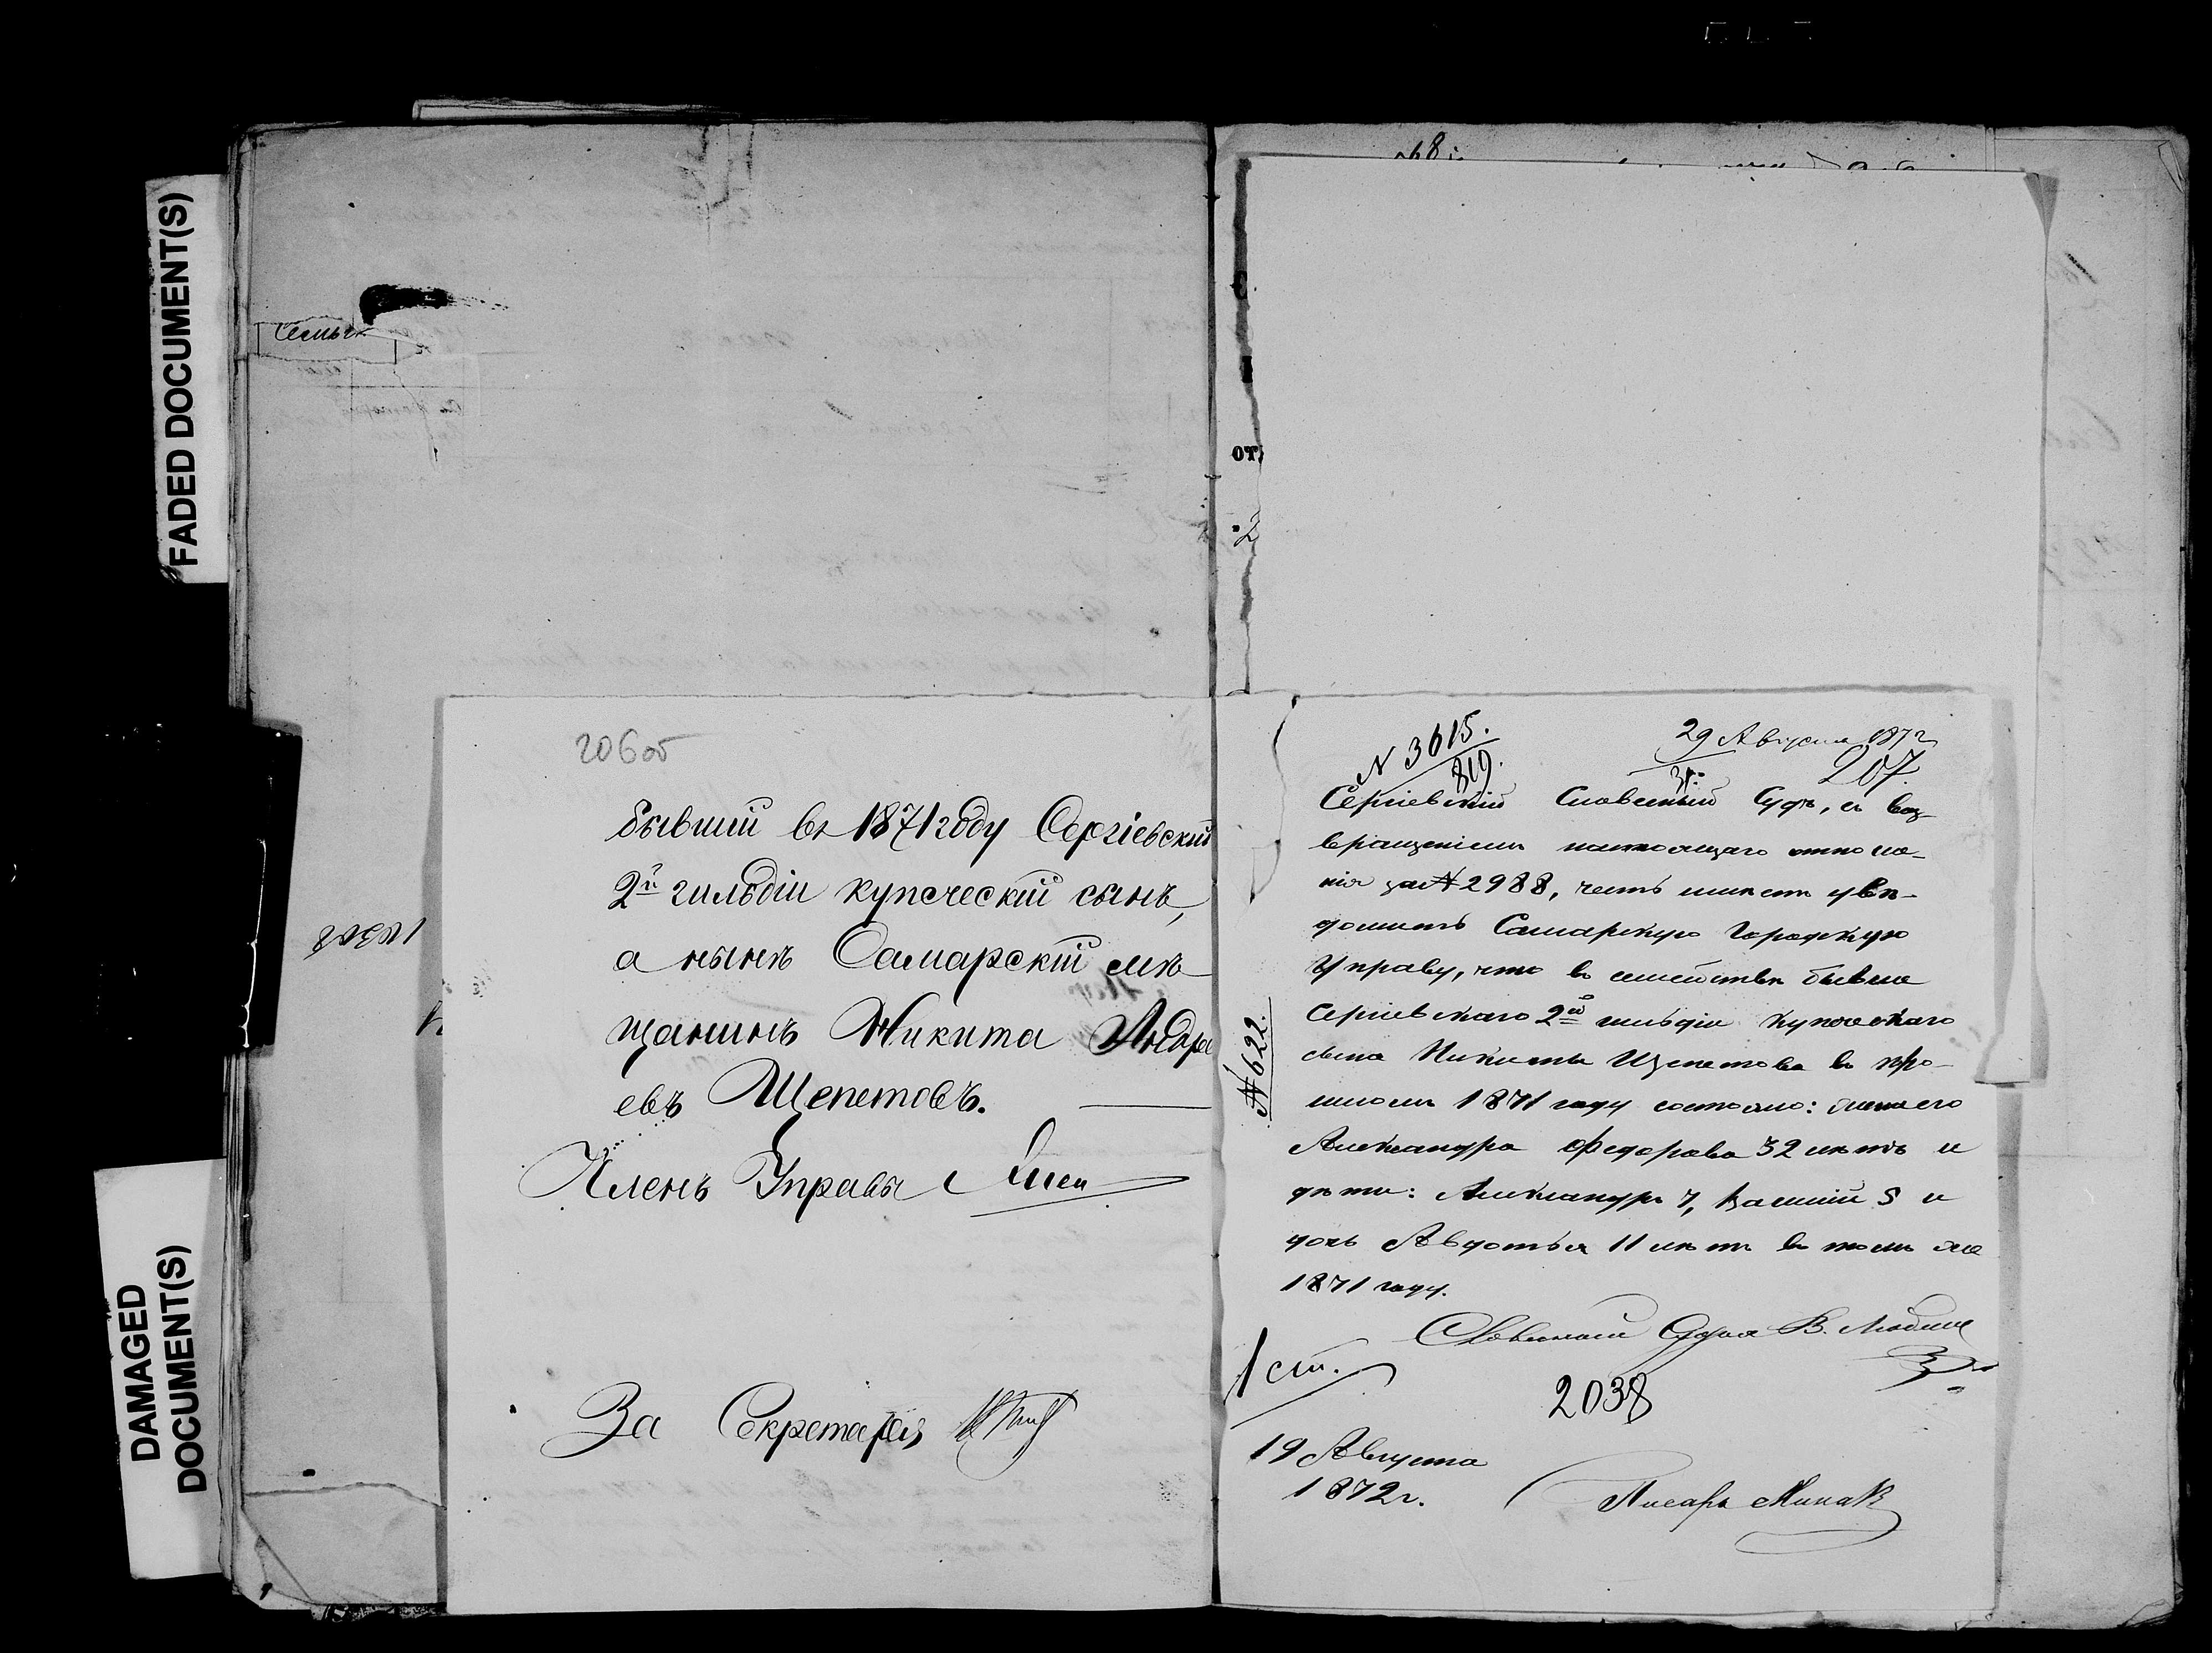 FADED DOCUMENT(S)
DAMAGED
DOCUMENT(S)
206об
бывшій въ 1871 году Сергіевскій
2й гильдіи купеческій сынъ,
а нынѣ Самарскій мѣ-
щанинъ Никита Андре
евъ Щепетовъ.
Членъ Управы
За Секретаря
от
N 3615.
819.
29 Августа 1872
207
Сергіевскій Словесный Судъ, съ воз-
вращеніемъ настоящаго отноше-
нія за № 2988, честь имѣетъ увѣ-
домить Самарскую Городскую
Управу, что въ семействѣ бывшаго
Сергіевскаго 2й гильдіи купеческаго
сына Никиты Щепетова въ про-
шломъ 1871 году состояло: жена его
Александра Федорова 32 лѣтъ и
дѣти: Александръ 7, Василій 5 и
дочь Авдотья 11 лѣтъ въ томъ же
1871 году.
№ 622.
Словесный Судья В.
1 ст.
2038
19 Августа
1872 г.
Писарь